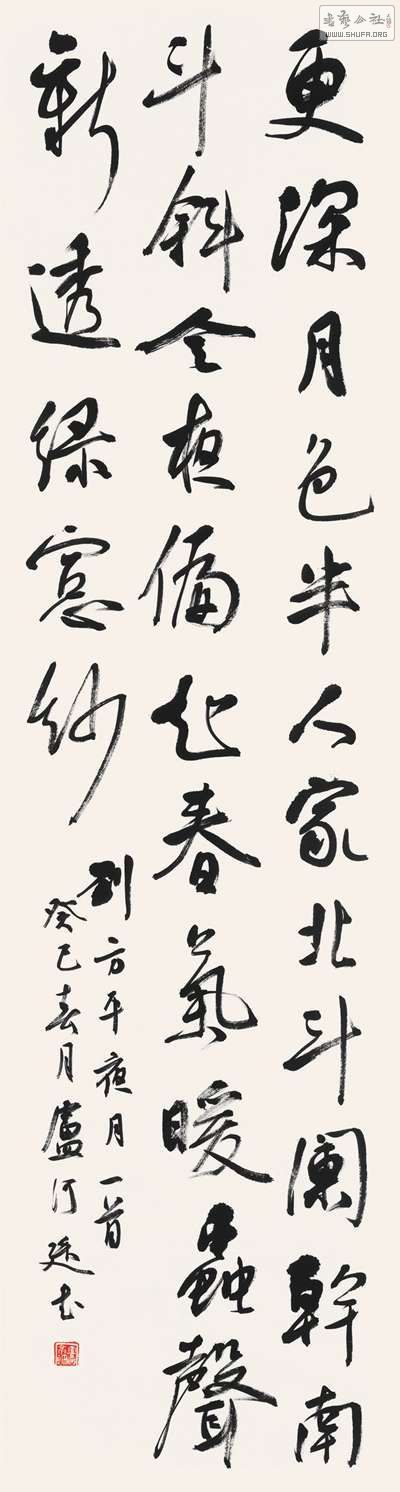 書藝公社
WWW.SHUFA.ORG
更深月色半人家北斗闌幹南
斗斜今夜偏知春氣暖蟲聲
新透綠窻紗
劉方平夜月一首
癸巳春月盧书